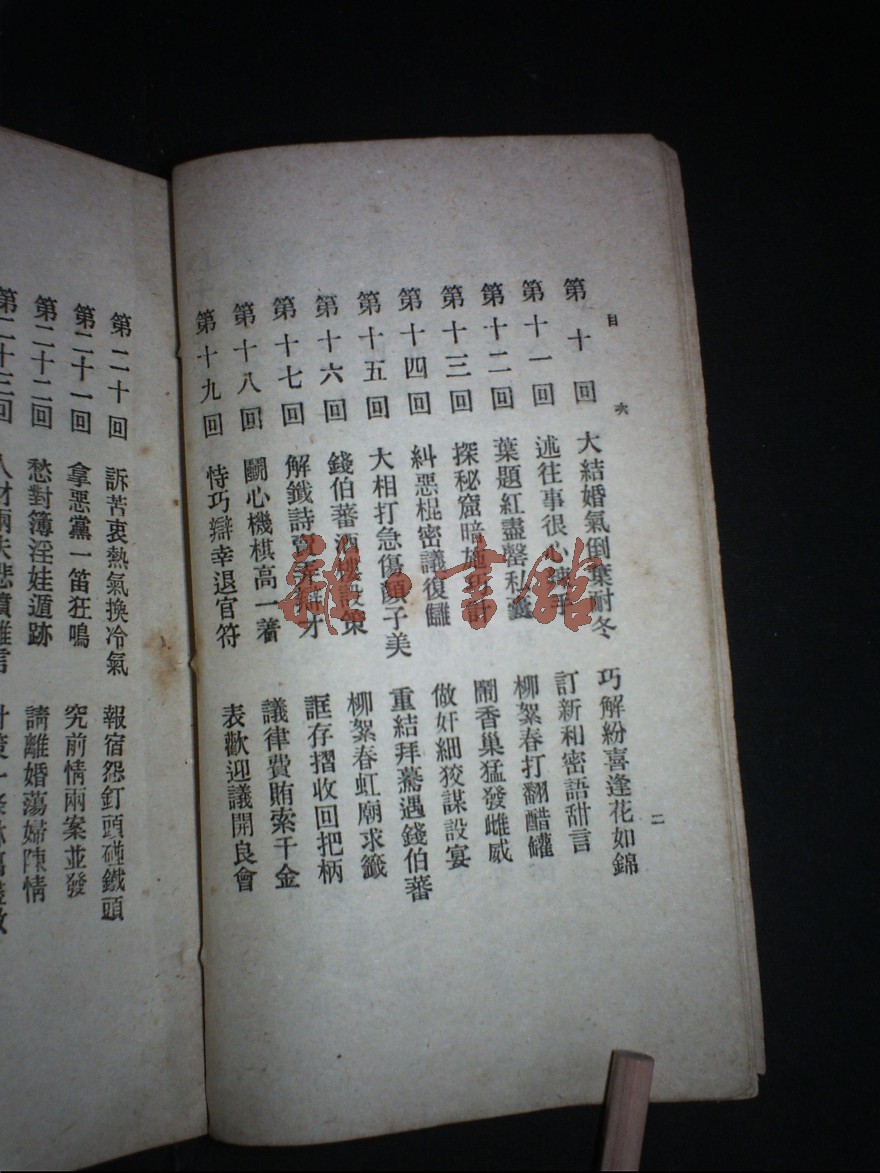 目 六 二
第十回 大結婚氣倒葉耐冬 巧解紛喜逢花如錦
第十一回 述往事很心 訂新和密語甜言
第十二回 葉題紅盡罄私囊 柳絮春打翻醋罐
第十三回 探秘窟暗施 鬧香巢猛發雌威
第十四回 糾惡棍密議復讎 做奸細狡謀設宴
第十五回 大相打急傷顏子美 重結拜驀遇錢伯蕃
第十六回 錢伯蕃酒樓設策 柳絮春虹廟求籤
第十七回 解鐵詩賣弄 才 誆存摺收回把柄
第十八回 鬭心機棋高一着 議律費賄索千金
第十九回 恃巧辯幸退官符 表歡迎議開良會
第二十回 訴苦衷熱氣換冷氣 報宿怨釘頭碰鐵頭
第二十一回 拿惡黨一笛狂鳴 究前情兩案並發
第二十二回 愁對簿淫娃遁跡 請離婚蕩婦陳情
第二十三回
雜·書館